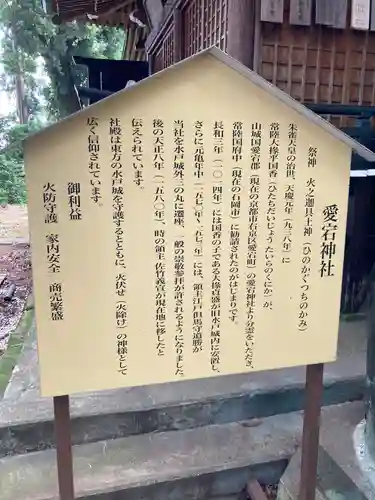 愛宕神社
祭神　火之迦具土神（ひのかぐつちのかみ）
朱雀天皇の治世、天慶元年（九三八年）に
常陸大掾平国香（ひたちだいじょうたいらのくにか）が、
山城国愛宕郡（現在の京都市右京区愛宕町）の愛宕神社より分霊をいただき、
常陸国府中（現在の石岡市）に勧請されたのがはじまりです。
長和三年（一〇一四年）には国香の子である大掾貞盛が旧水戸城内に安置し、
さらに元亀年中（一五七〇～一五七三年）には、領主江戸但馬守道勝が
当社を水戸城外二の丸に遷座、一般の崇敬参拝が許されるようになりました。
後の天正八年（一五八〇年）、時の領主佐竹義宣が現在地に移したと
伝えられています。
社殿は東方の水戸城を守護するとともに、火伏せ（火除け）の神様として
広く信仰されています。
御利益
火防守護　家内安全　商売繁盛